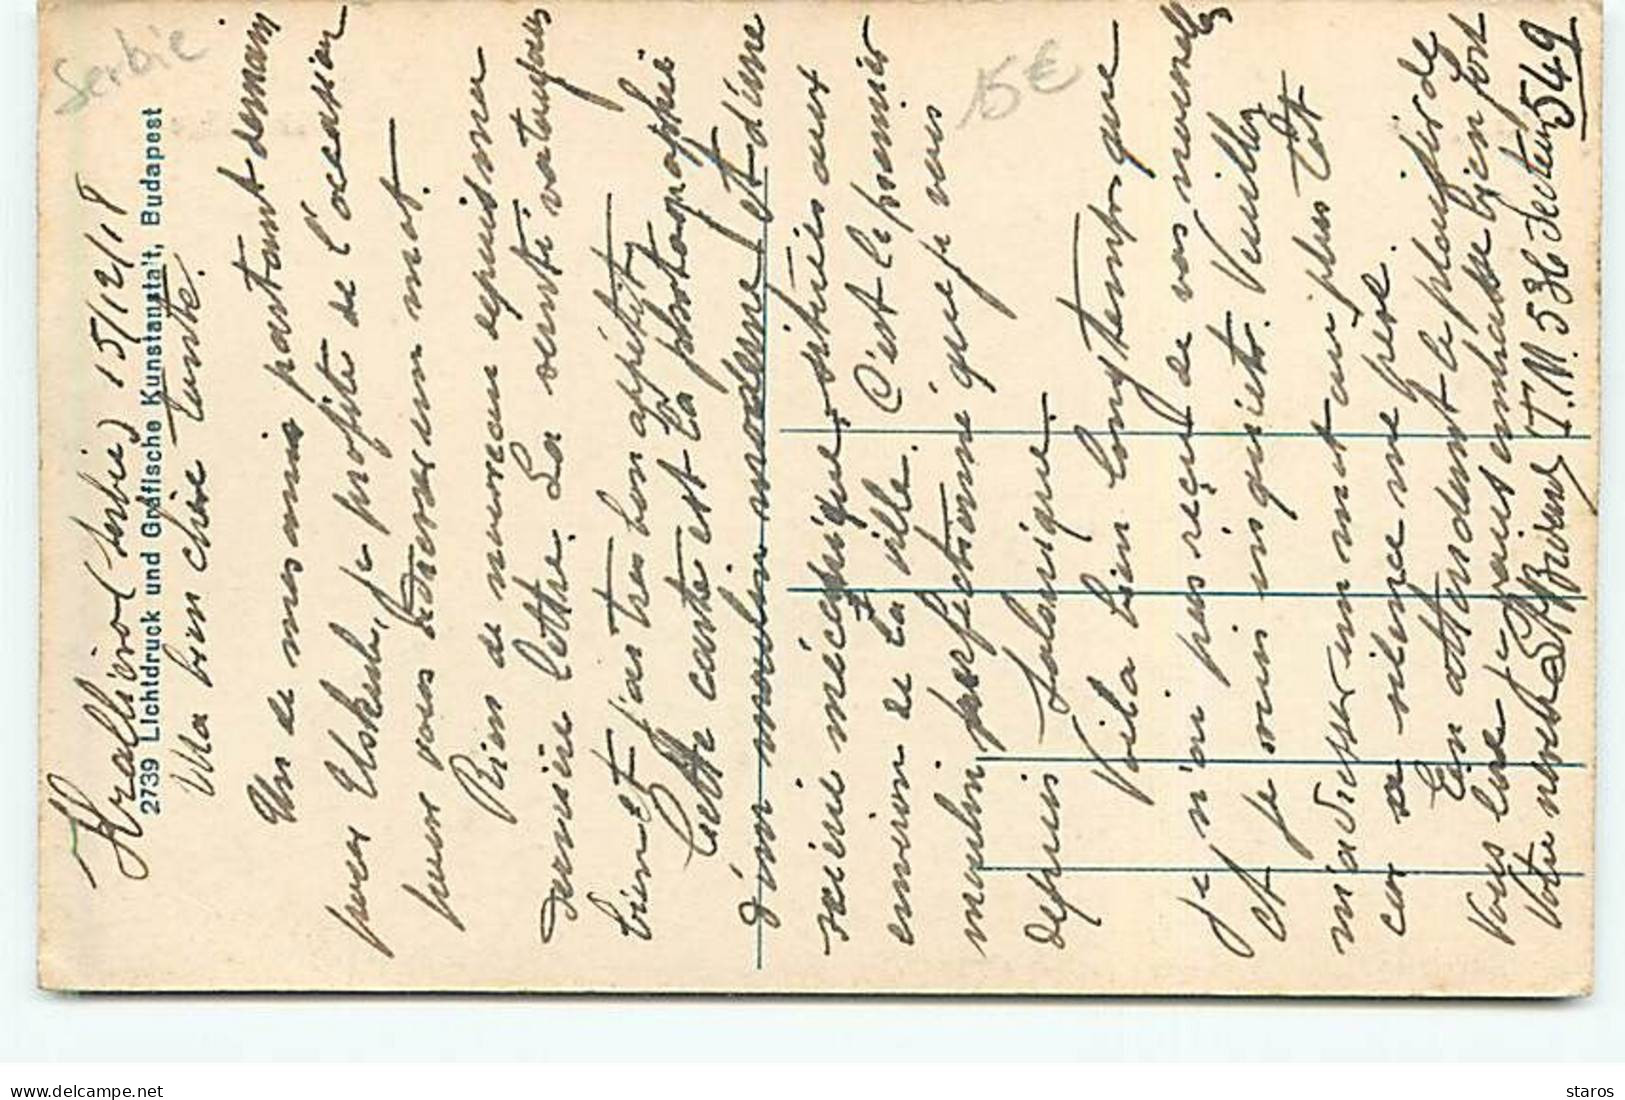 Serbie
15€
2739 Lichtdruck und Grafische Kunstanstalt, Budapest
Krallievo (Serbie) 15/12/18
Ma bien chère Tante.
Un de mes amis partant demain
pour Uskub, je profite de l'occasion
pour vous adresser un mot.
Rien de nouveau depuis ma
dernière lettre. La santé va toujours
bien et j'ai très bon appétit.
Cette carte est la photographie
d'un moulin moderne et d'une
scierie mécanique, situées aux
environ de la ville. C'est le premier
moulin perfectionné que je vois
depuis Salonique.
Voila bien longtemps que
je n'ai pas reçu de vos nouvelles
et je suis inquiet. Veuillez
m'adresser un mot au plus tôt
car ce silence me pèse.
En attendant le plaisir de
vous lire je vous embrasse bien fort
Votre neveu
T.M. 536 Secteur 549
delcampe.net
staros